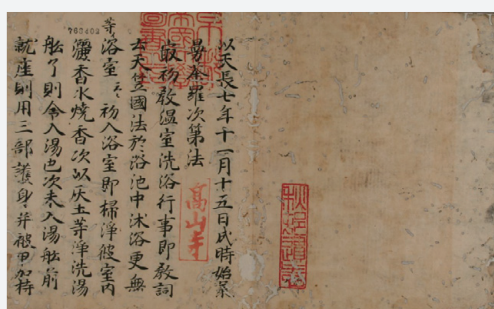 以天長七年十一月十五日戌時始奉
曼荼羅次第法
最初教温室洗浴行事即教詞
云天竺國法於浴池中沐浴更無
等浴室云云初入浴室即掃浄彼室内
灑香水焼香次以灰土等浄洗湯
舩了則令入湯也次未入湯舩前
就座則用三部護身并被甲加持
高山寺
760402